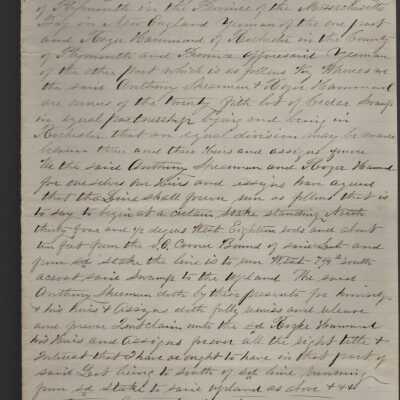 of Plymouth in the Province of the Massachusetts
Bay in New England Yeoman of the one part
and Roger Hammond of Rochester in the County
of Plymouth and Province afforesaid Yeoman
of the other part which is as follows Viz Whereas we
the said Anthony Shearman & Roger Hammond
are owners of the twenty fifth lot of Cedar Swamp
in equal partnership lying and being in
Rochester that an equal division may be made
between them and their Heirs and assigns
We the said Anthony Shearman and Roger Hammond
for ourselves our Heirs and assigns have agreed
that the Line shall forever run as follows that is
to say to begin at a certain stake standing North
thirty four and ½ degres West Eighteen rods and about
ten feet from the Corner Bound of said Lot and
from sd stake the line is to run West south
across said Swamp to the Upland The said
Anthony Shearman doth by these presents for himself
& his Heirs & Assigns doth fully remise and release
and forever Quitclaim unto the sd Roger Hammond
his Heirs and Assigns forever all the right title &
Interest that I have or ought to have in that part of
said Lot lying to south of sd line running
from sd stake to said Upland as above